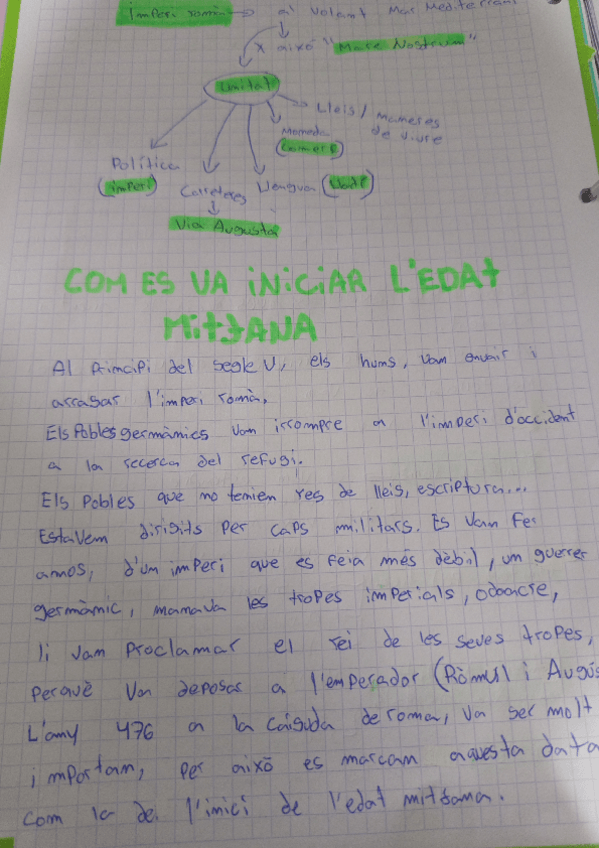 Imperi romà → al voltant Mar Mediterrani
x això "Mare Nostrum"
Unitat
Lleis / Maneres
de viure
Moneda
(Comerç)
Política
(imperi)
Carreteres
Llengua (llatí)
Via Augusta
COM ES VA INICIAR L'EDAT
MITJANA
Al Principi del segle V, els huns, van envair i
arrasar l'imperi romà,
Els Pobles germànics van irrompre a l'imperi d'occident
a la recerca del refugi.
Els Pobles que no tenien res de lleis, escriptura...
Estavem dirigits per caps militars. Es van fer
amos, d'un imperi que es feia més dèbil, un guerrer
germànic, manava les tropes imperials, odoacre,
li van proclamar el rei de les seves tropes,
perquè van deposar a l'emperador (Ròmul i Augús
L'any 476 a la caiguda de roma, va ser molt
important, per això es marcam aquesta data
com la de l'inici de l'edat mitjana.